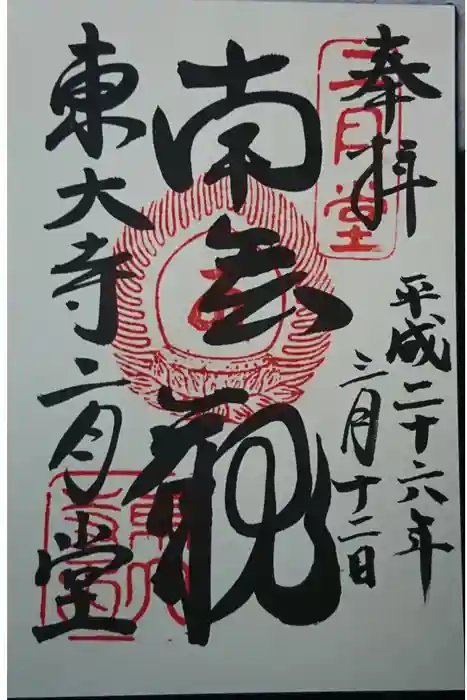 奉拝
二月堂
平成二十六年
三月十二日
南無観
東大寺二月堂